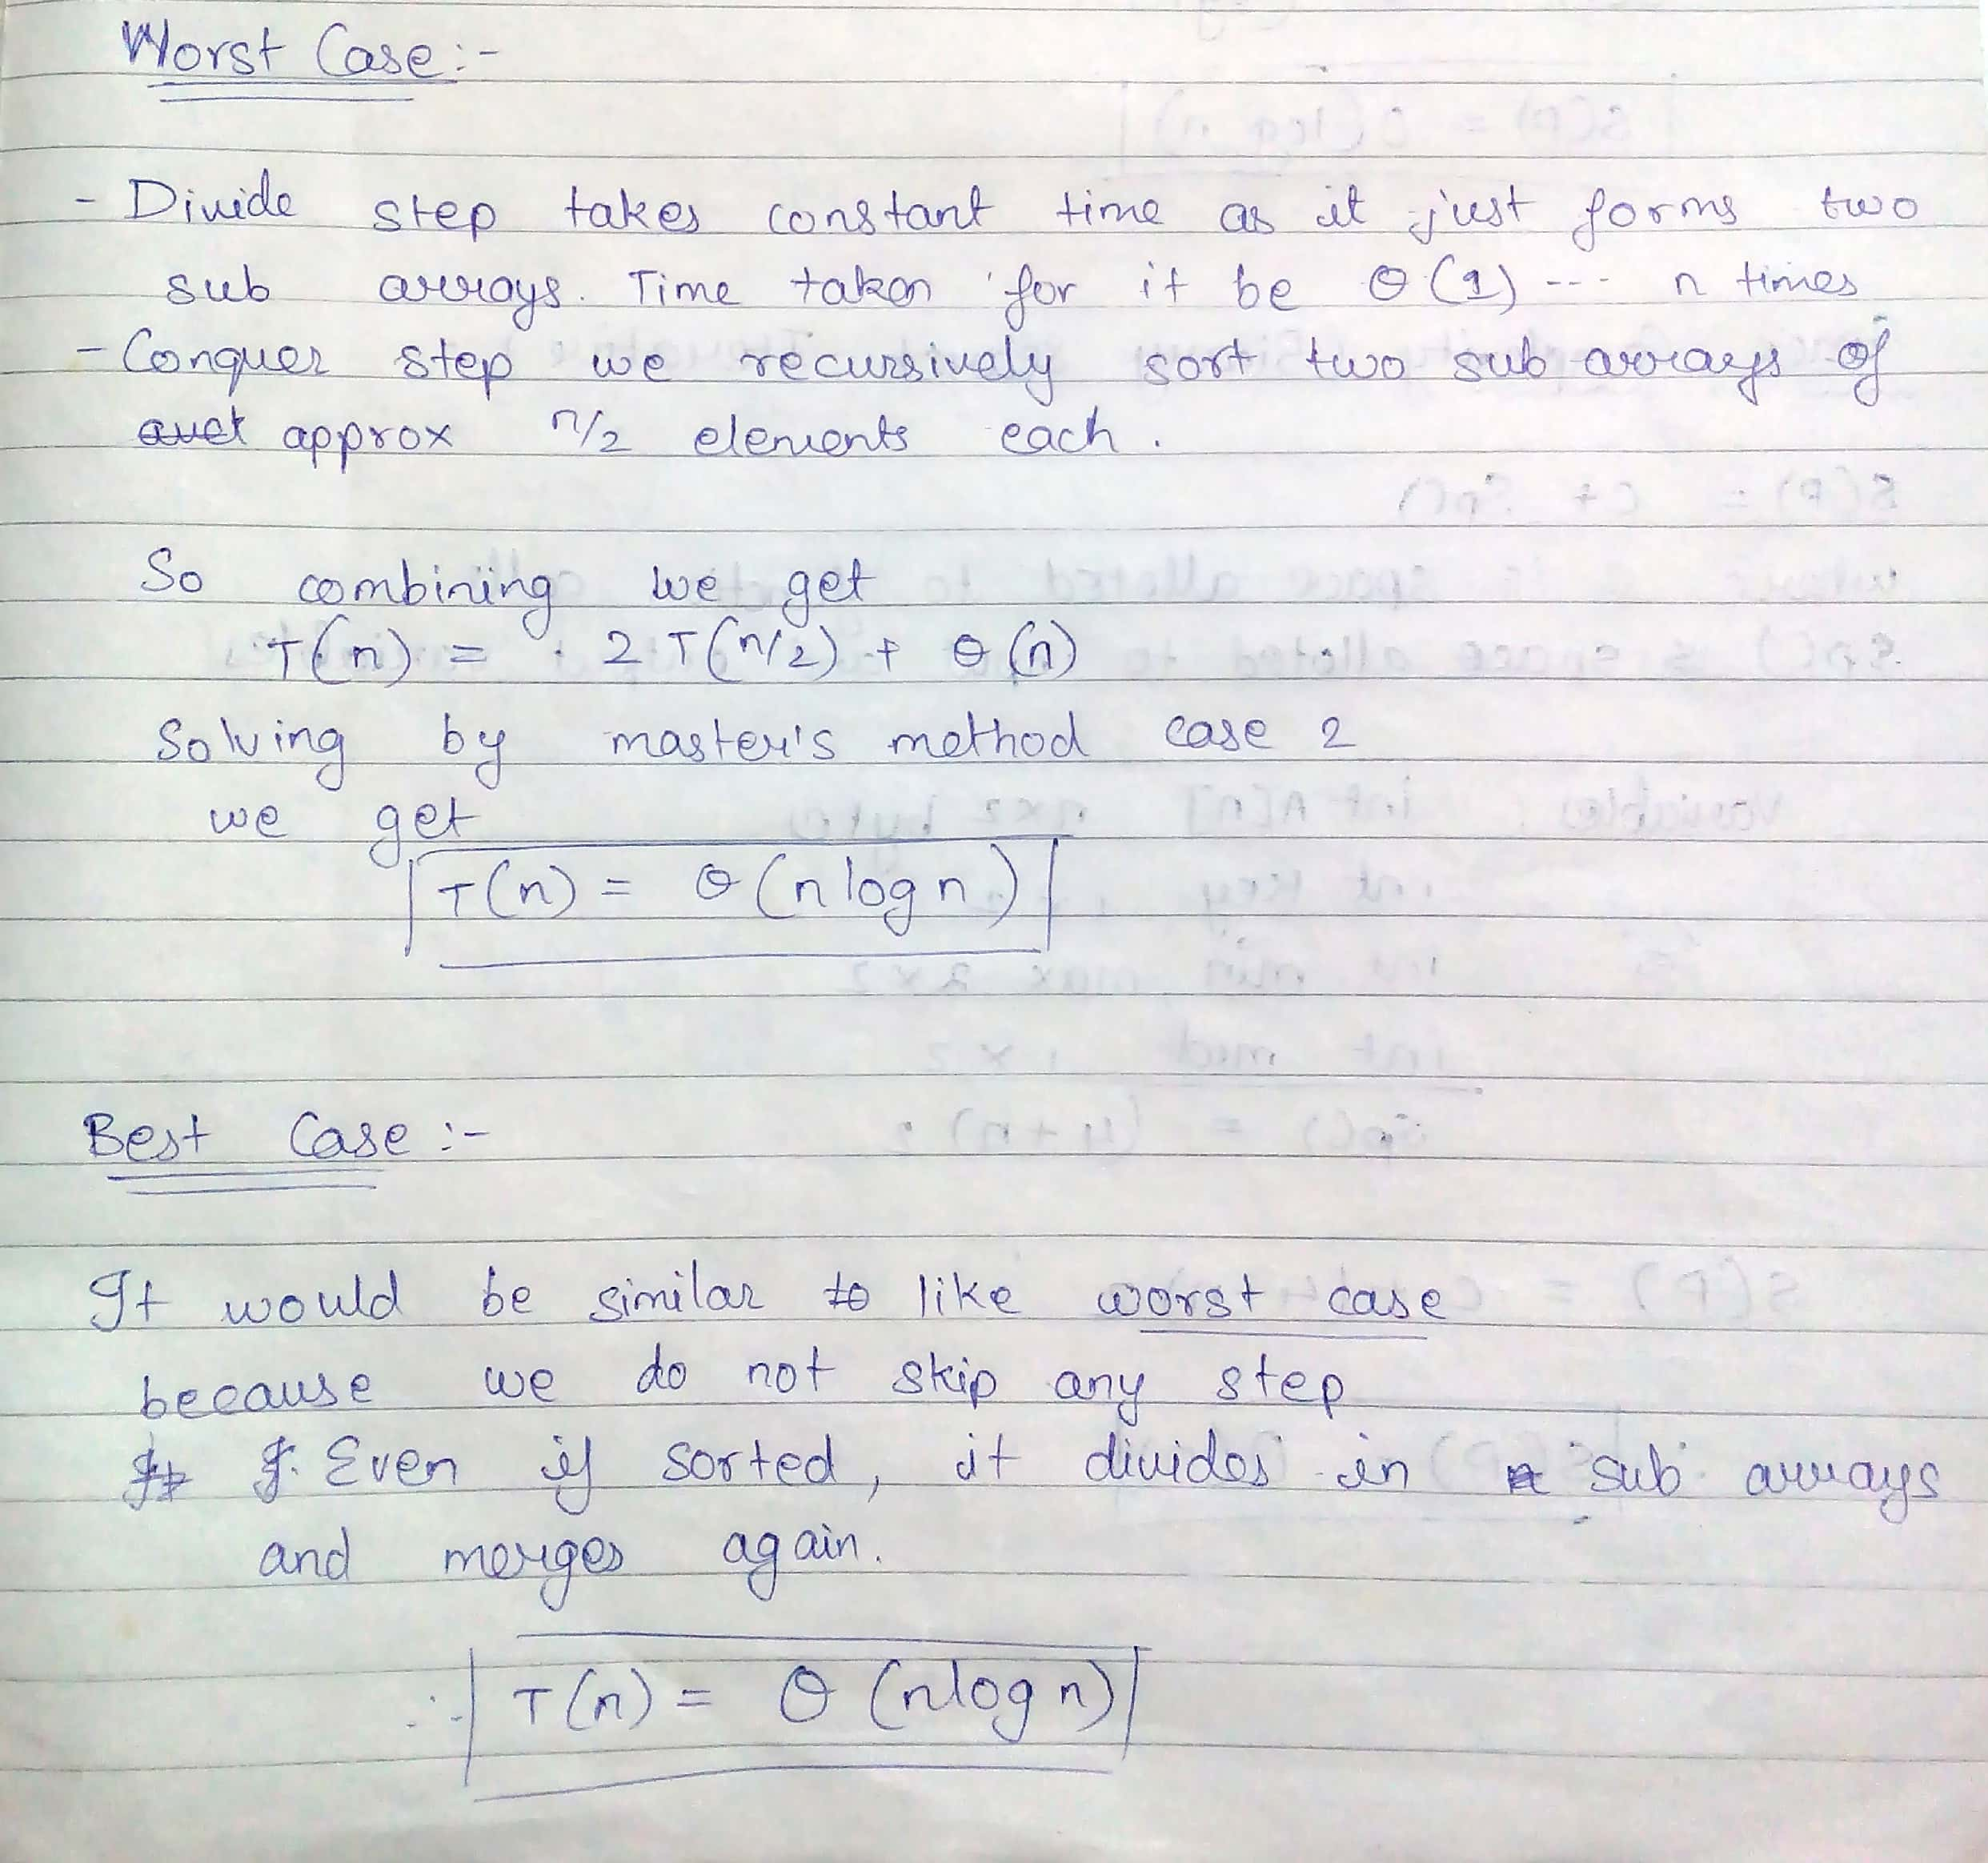 Worst Case :-
- Divide step takes constant time as it just forms two
sub arrays. Time taken for it be θ(1) --- n times
- Conquer step we recursively sort two sub arrays of
approx n/2 elements each.
So combining we get
T(n) = 2T(n/2) + θ(n)
Solving by master's method case 2
we get
T(n) = θ(n log n)
Best Case :-
It would be similar like worst case
because we do not skip any step
Even if sorted, it divides in sub arrays
and merges again.
∴ T(n) = θ(nlog n)